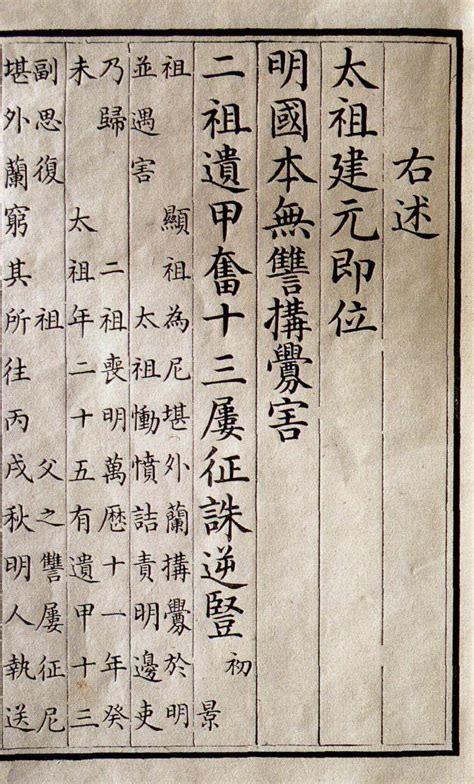 右述
太祖建元即位
明國本無讐搆釁害
二祖遺甲奮十三屢征誅逆豎
初
景
祖 顯祖為尼堪外蘭搆釁於明
並遇害 太祖慟憤詰責明邊吏
乃歸 二祖喪明萬歷十一年癸
未 太祖年二十五有遺甲十三
副思復 祖 父之讐屢征尼
堪外蘭窮其所往丙戌秋明人執送